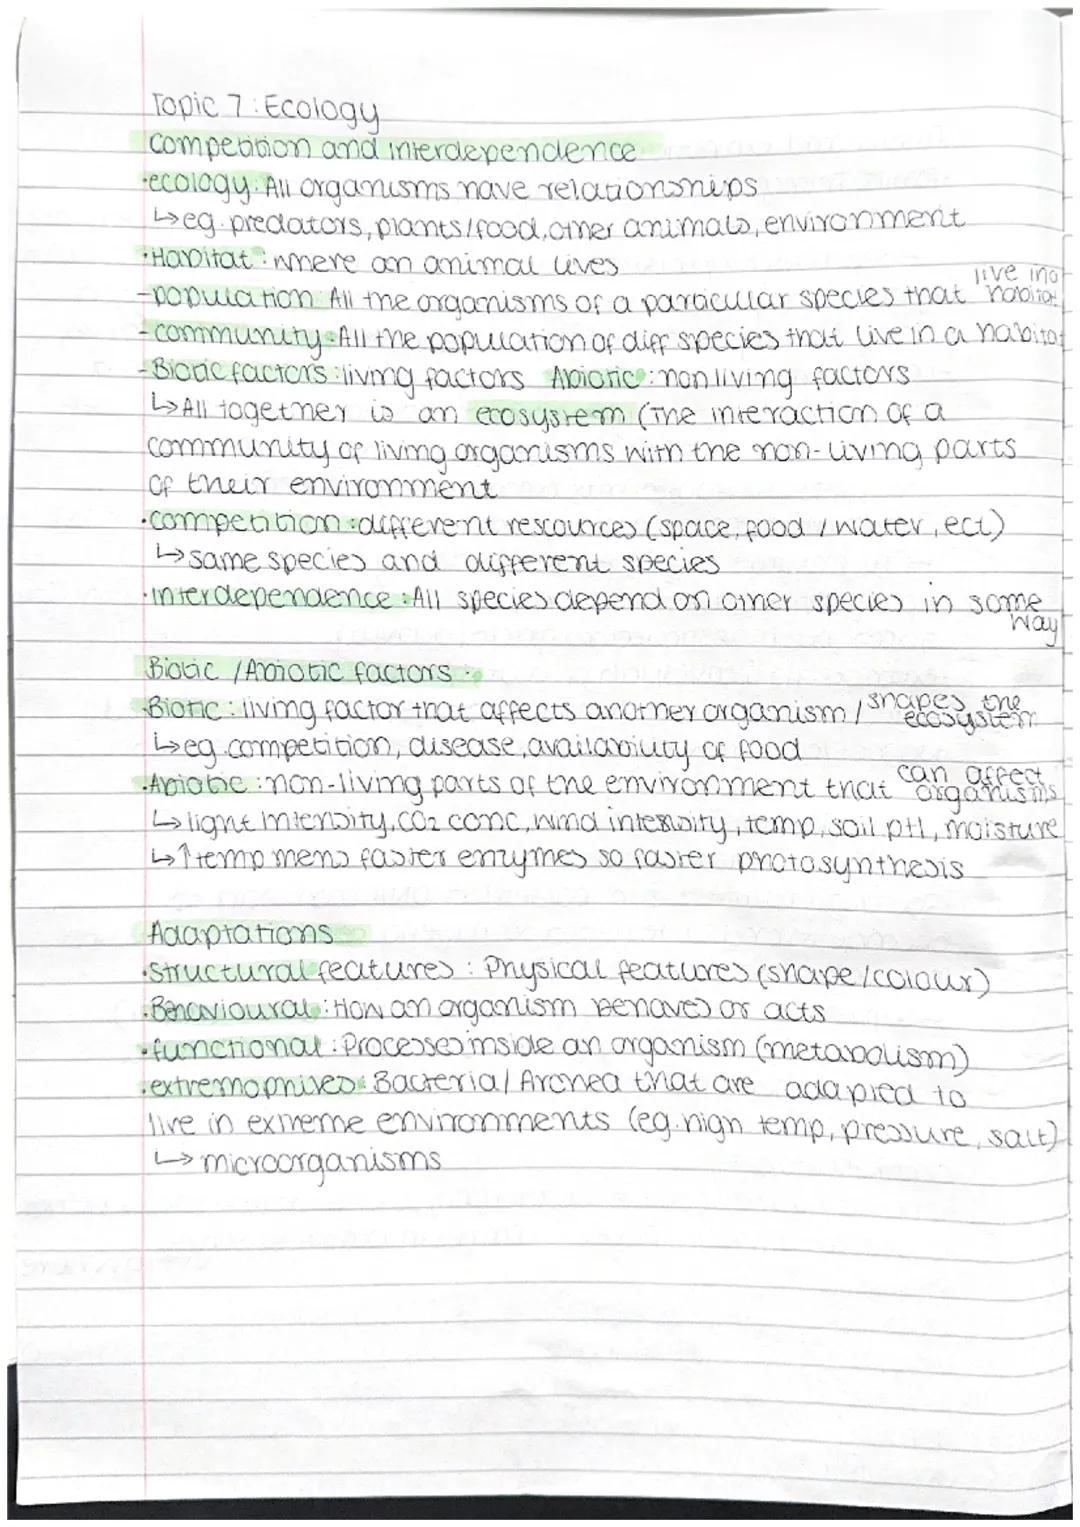 Topic 7: Ecology
Competition and interdependence
·ecology: All organisms have relationships
↳eg. predators, plants/food, other animals, environment
·Habitat: where an animal lives
-population: All the organisms of a particular species that live in a habitat
-community: All the population of diff species that live in a habitat
-Biotic factors: living factors Abiotic: non living factors
↳All together is an ecosystem (The interaction of a
community of living organisms with the non-living parts
of their environment
·competition: different rescources (space, food / water, ect)
↳same species and different species
·interdependence: All species depend on other species in some way
Biotic / Abiotic factors:
·Biotic: living factor that affects another organism / shapes the ecosystem
↳eg. competition, disease, availability of food
·Abiotic: non-living parts of the environment that can affect organisms
↳light intensity, CO2 conc, wind intensity, temp, soil pH, moisture
↳↑temp mens faster enzymes so faster photosynthesis
Adaptations
·Structural features: Physical features (shape/colour)
·Behavioural: How an organism behaves or acts
·functional: Processes inside an organism (metabolism)
·extremophiles: Bacteria/ Archea that are adapted to
live in extreme environments (eg. high temp, pressure, salt)
↳ microorganisms